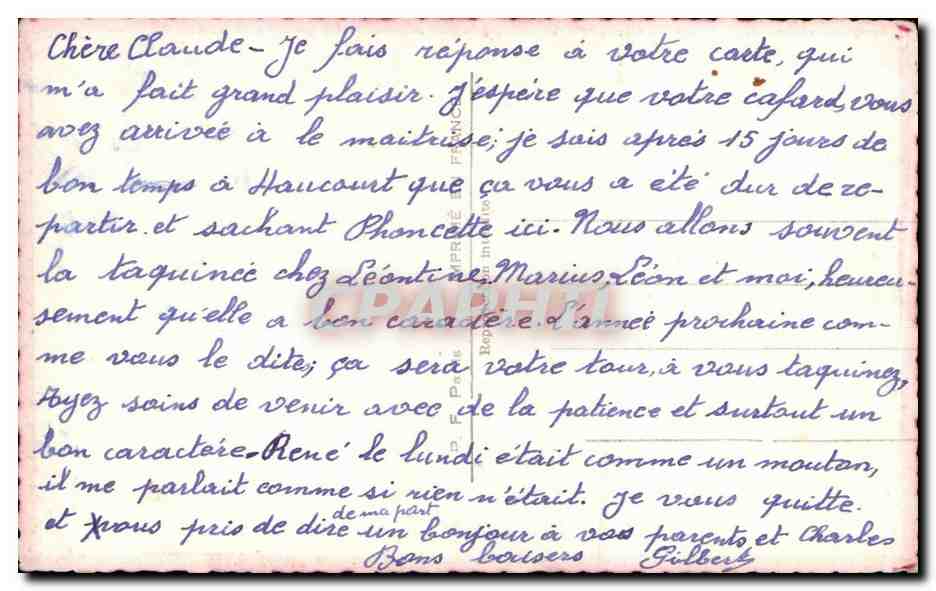 Chère Claude - Je fais réponse à votre carte, qui
m'a fait grand plaisir. J'espère que votre cafard, vous
avez arrivée à le maitrisé; je sais après 15 jours de
bon temps à Haucourt que ça vous a été dur de re-
partir. et sachant Phoncette ici. Nous allons souvent
la taquinée chez Léontine, Marius, Léon et moi, heureu-
sement qu'elle a bon caractère. L'année prochaine com-
me vous le dite; ça sera votre tour, à vous taquinez,
Ayez soins de venir avec de la patience et surtout un
bon caractère. René le lundi était comme un mouton,
il me parlait comme si rien n'était. Je vous quitte.
de ma part
et vous pris de dire un bonjour à vos parents et Charles
Bons baisers Gilbert
P. F. Paris IMPRIMÉ EN FRANCE
Reproduction interdite
CPAPHIL